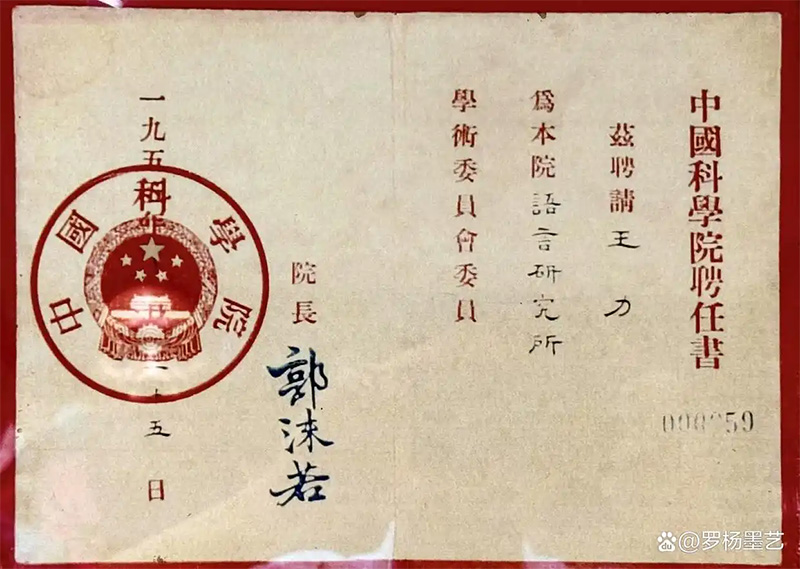 中國科學院聘任書
茲聘請王力
爲本院語言研究所
學術委員會委員
院長
郭沫若
一九五
十五日
中國科學院
59
@罗杨墨艺